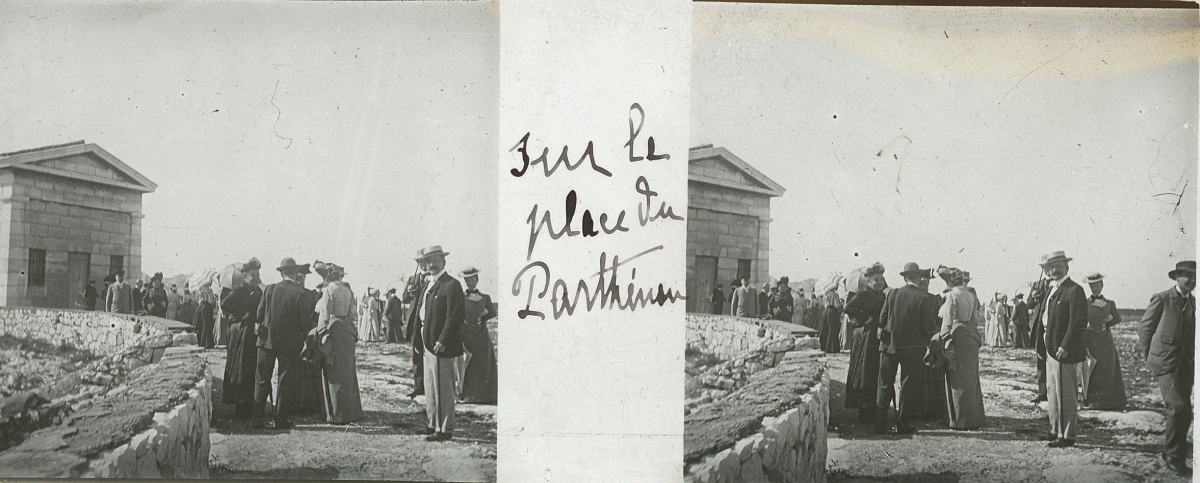 Sur la
place du
Parthénon